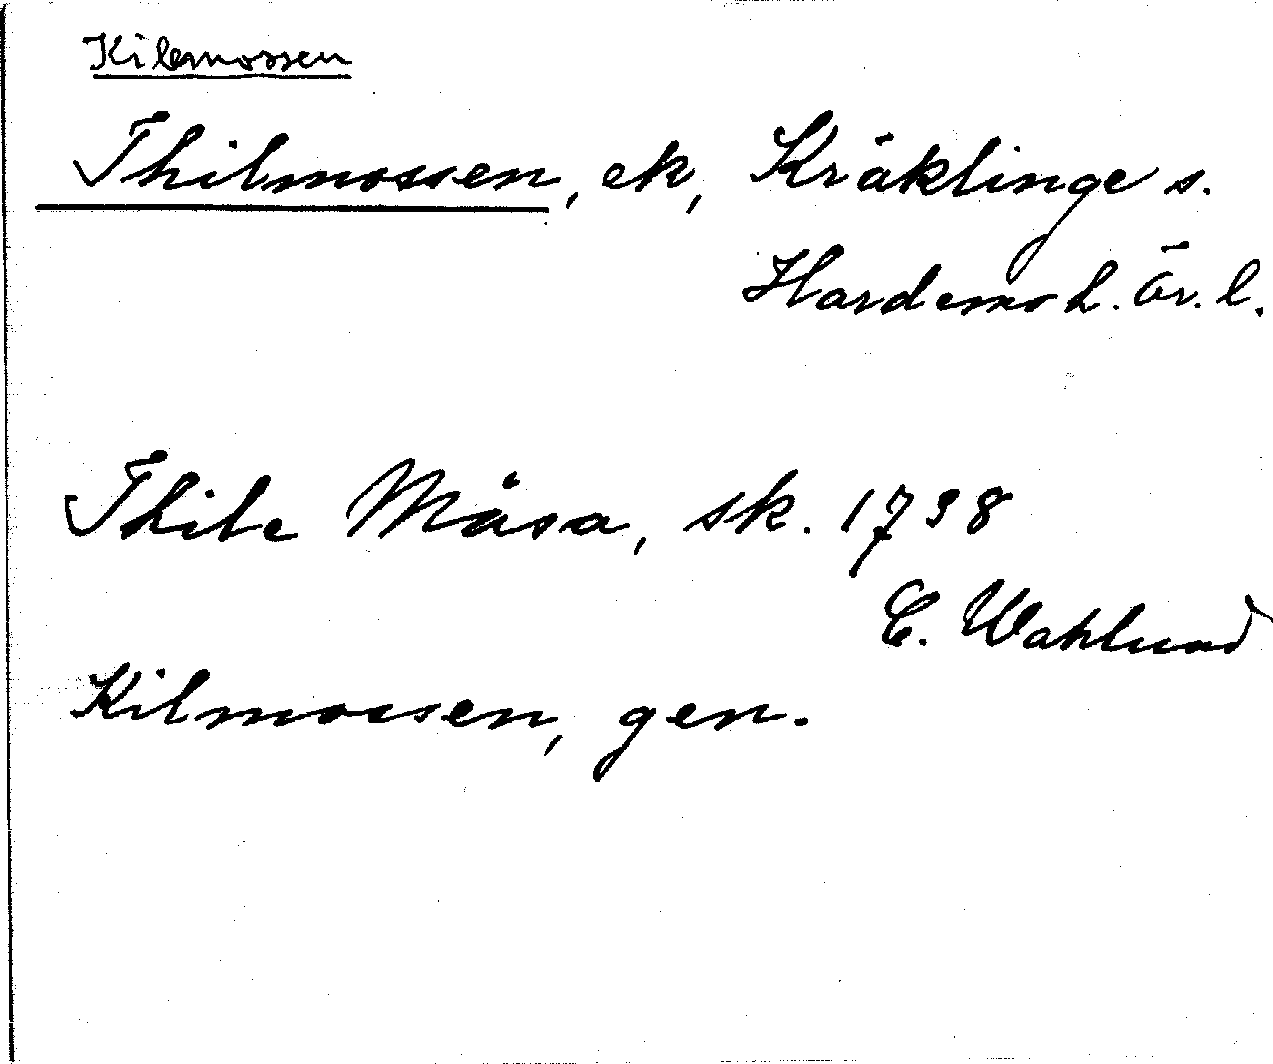 Kilsmossen
Thilmossen, ek, Kräklinge s.
Hardemo h. Ör. l.
Thile Måsa, sk. 1798
C. Wahlund
Kilmossen, gen.